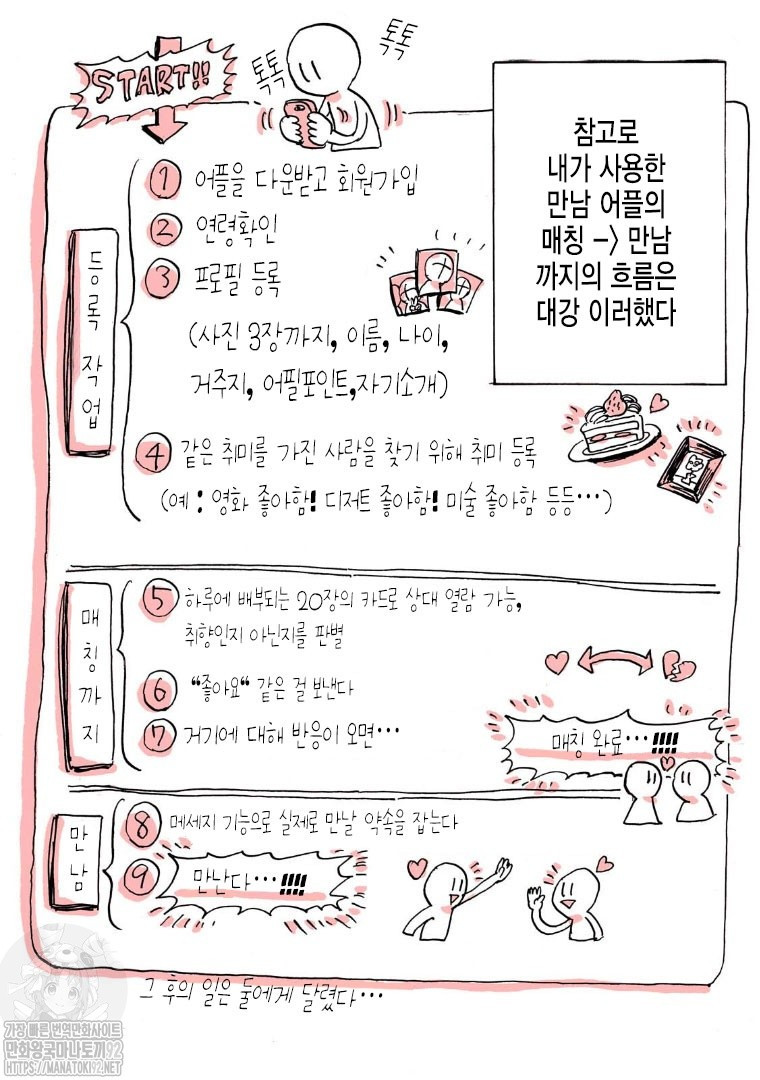 START!!
톡톡
톡톡
참고로
내가 사용한
만남 어플의
매칭 -> 만남
까지의 흐름은
대강 이러했다
등록 작업
① 어플을 다운받고 회원가입
② 연령확인
③ 프로필 등록
(사진 3장까지, 이름, 나이,
거주지, 어필포인트,자기소개)
④ 같은 취미를 가진 사람을 찾기 위해 취미 등록
(예 : 영화 좋아함! 디저트 좋아함! 미술 좋아함 등등…)
매칭까지
⑤ 하루에 배부되는 20장의 카드로 상대 열람 가능,
취향인지 아닌지를 판별
⑥ “좋아요“ 같은 걸 보낸다
⑦ 거기에 대해 반응이 오면…
매칭 완료…!!!!
만남
⑧ 메세지 기능으로 실제로 만날 약속을 잡는다
⑨ 만난다…!!!!
그 후의 일은 둘에게 달렸다…
가장 빠른 번역만화사이트
만화왕국마나토끼92
HTTPS://MANATOKI92.NET